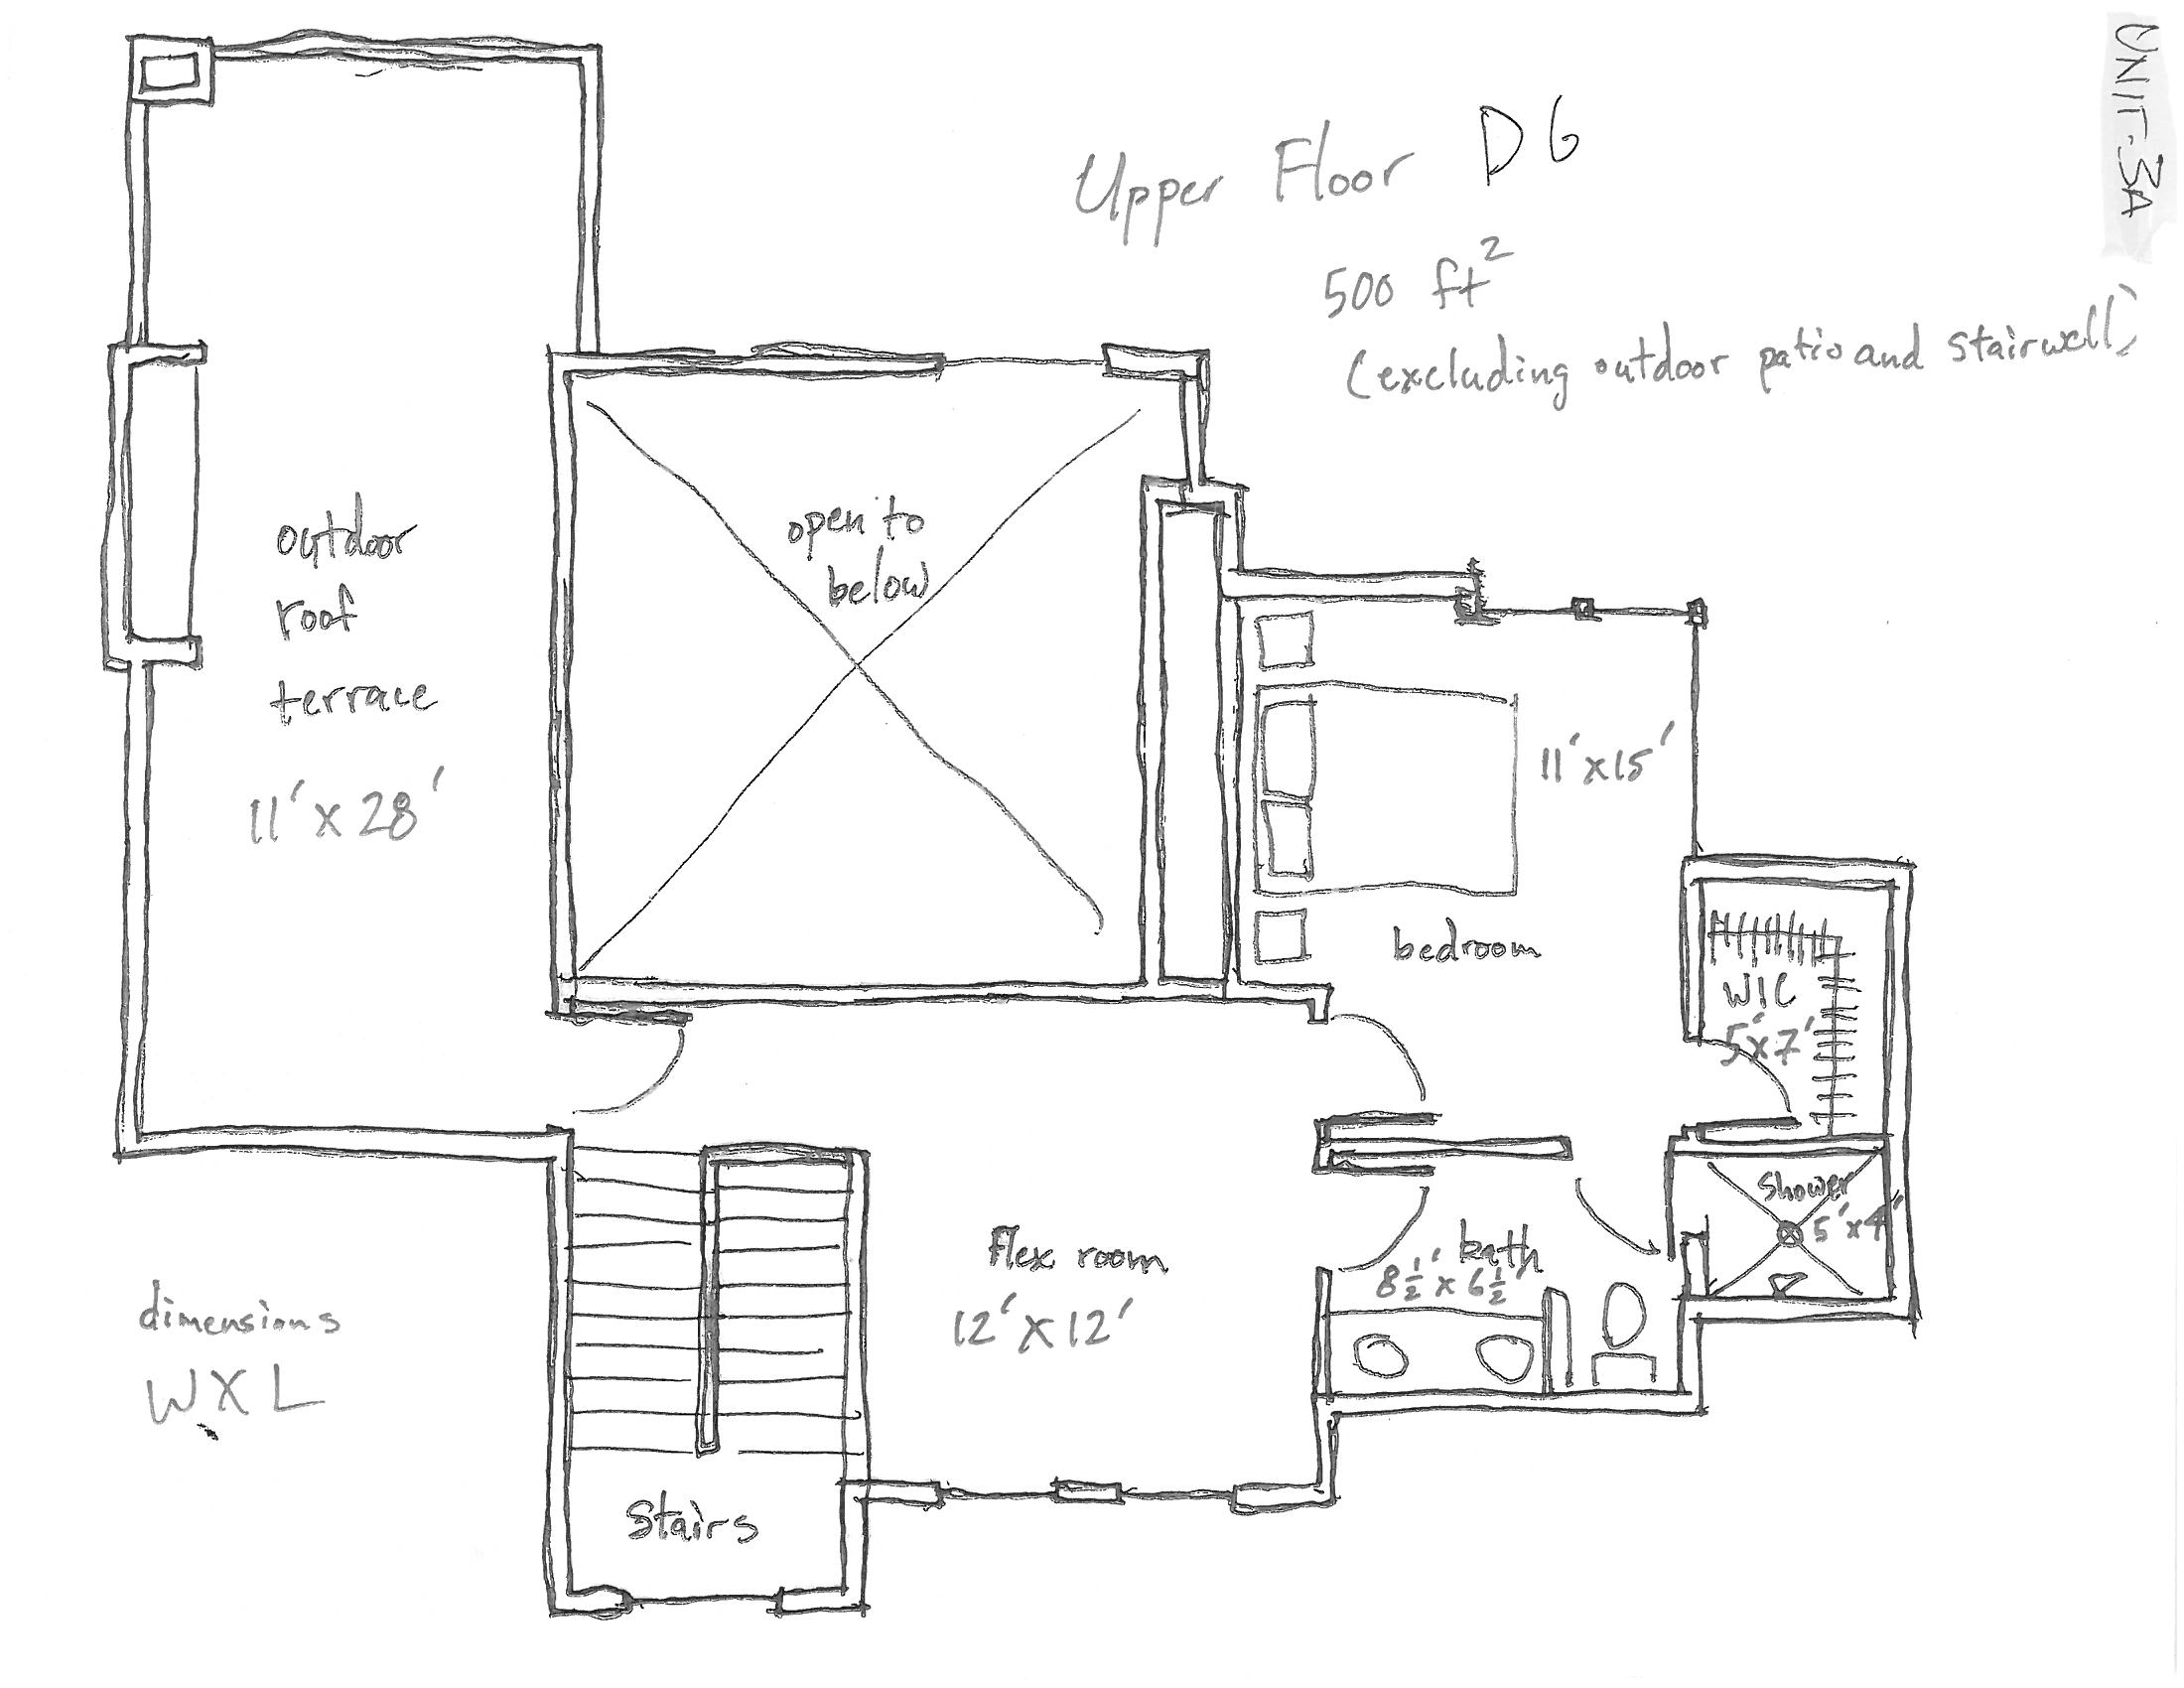 UNIT-3A
Upper Floor D6
500 ft²
(excluding outdoor patio and stairwell)
outdoor
roof
terrace
11' x 28'
open to
below
11' x 15'
bedroom
WIC
5' x 7'
shower
5' x 4'
bath
8 1/2' x 6 1/2'
Flex room
12' x 12'
dimensions
W X L
Stairs